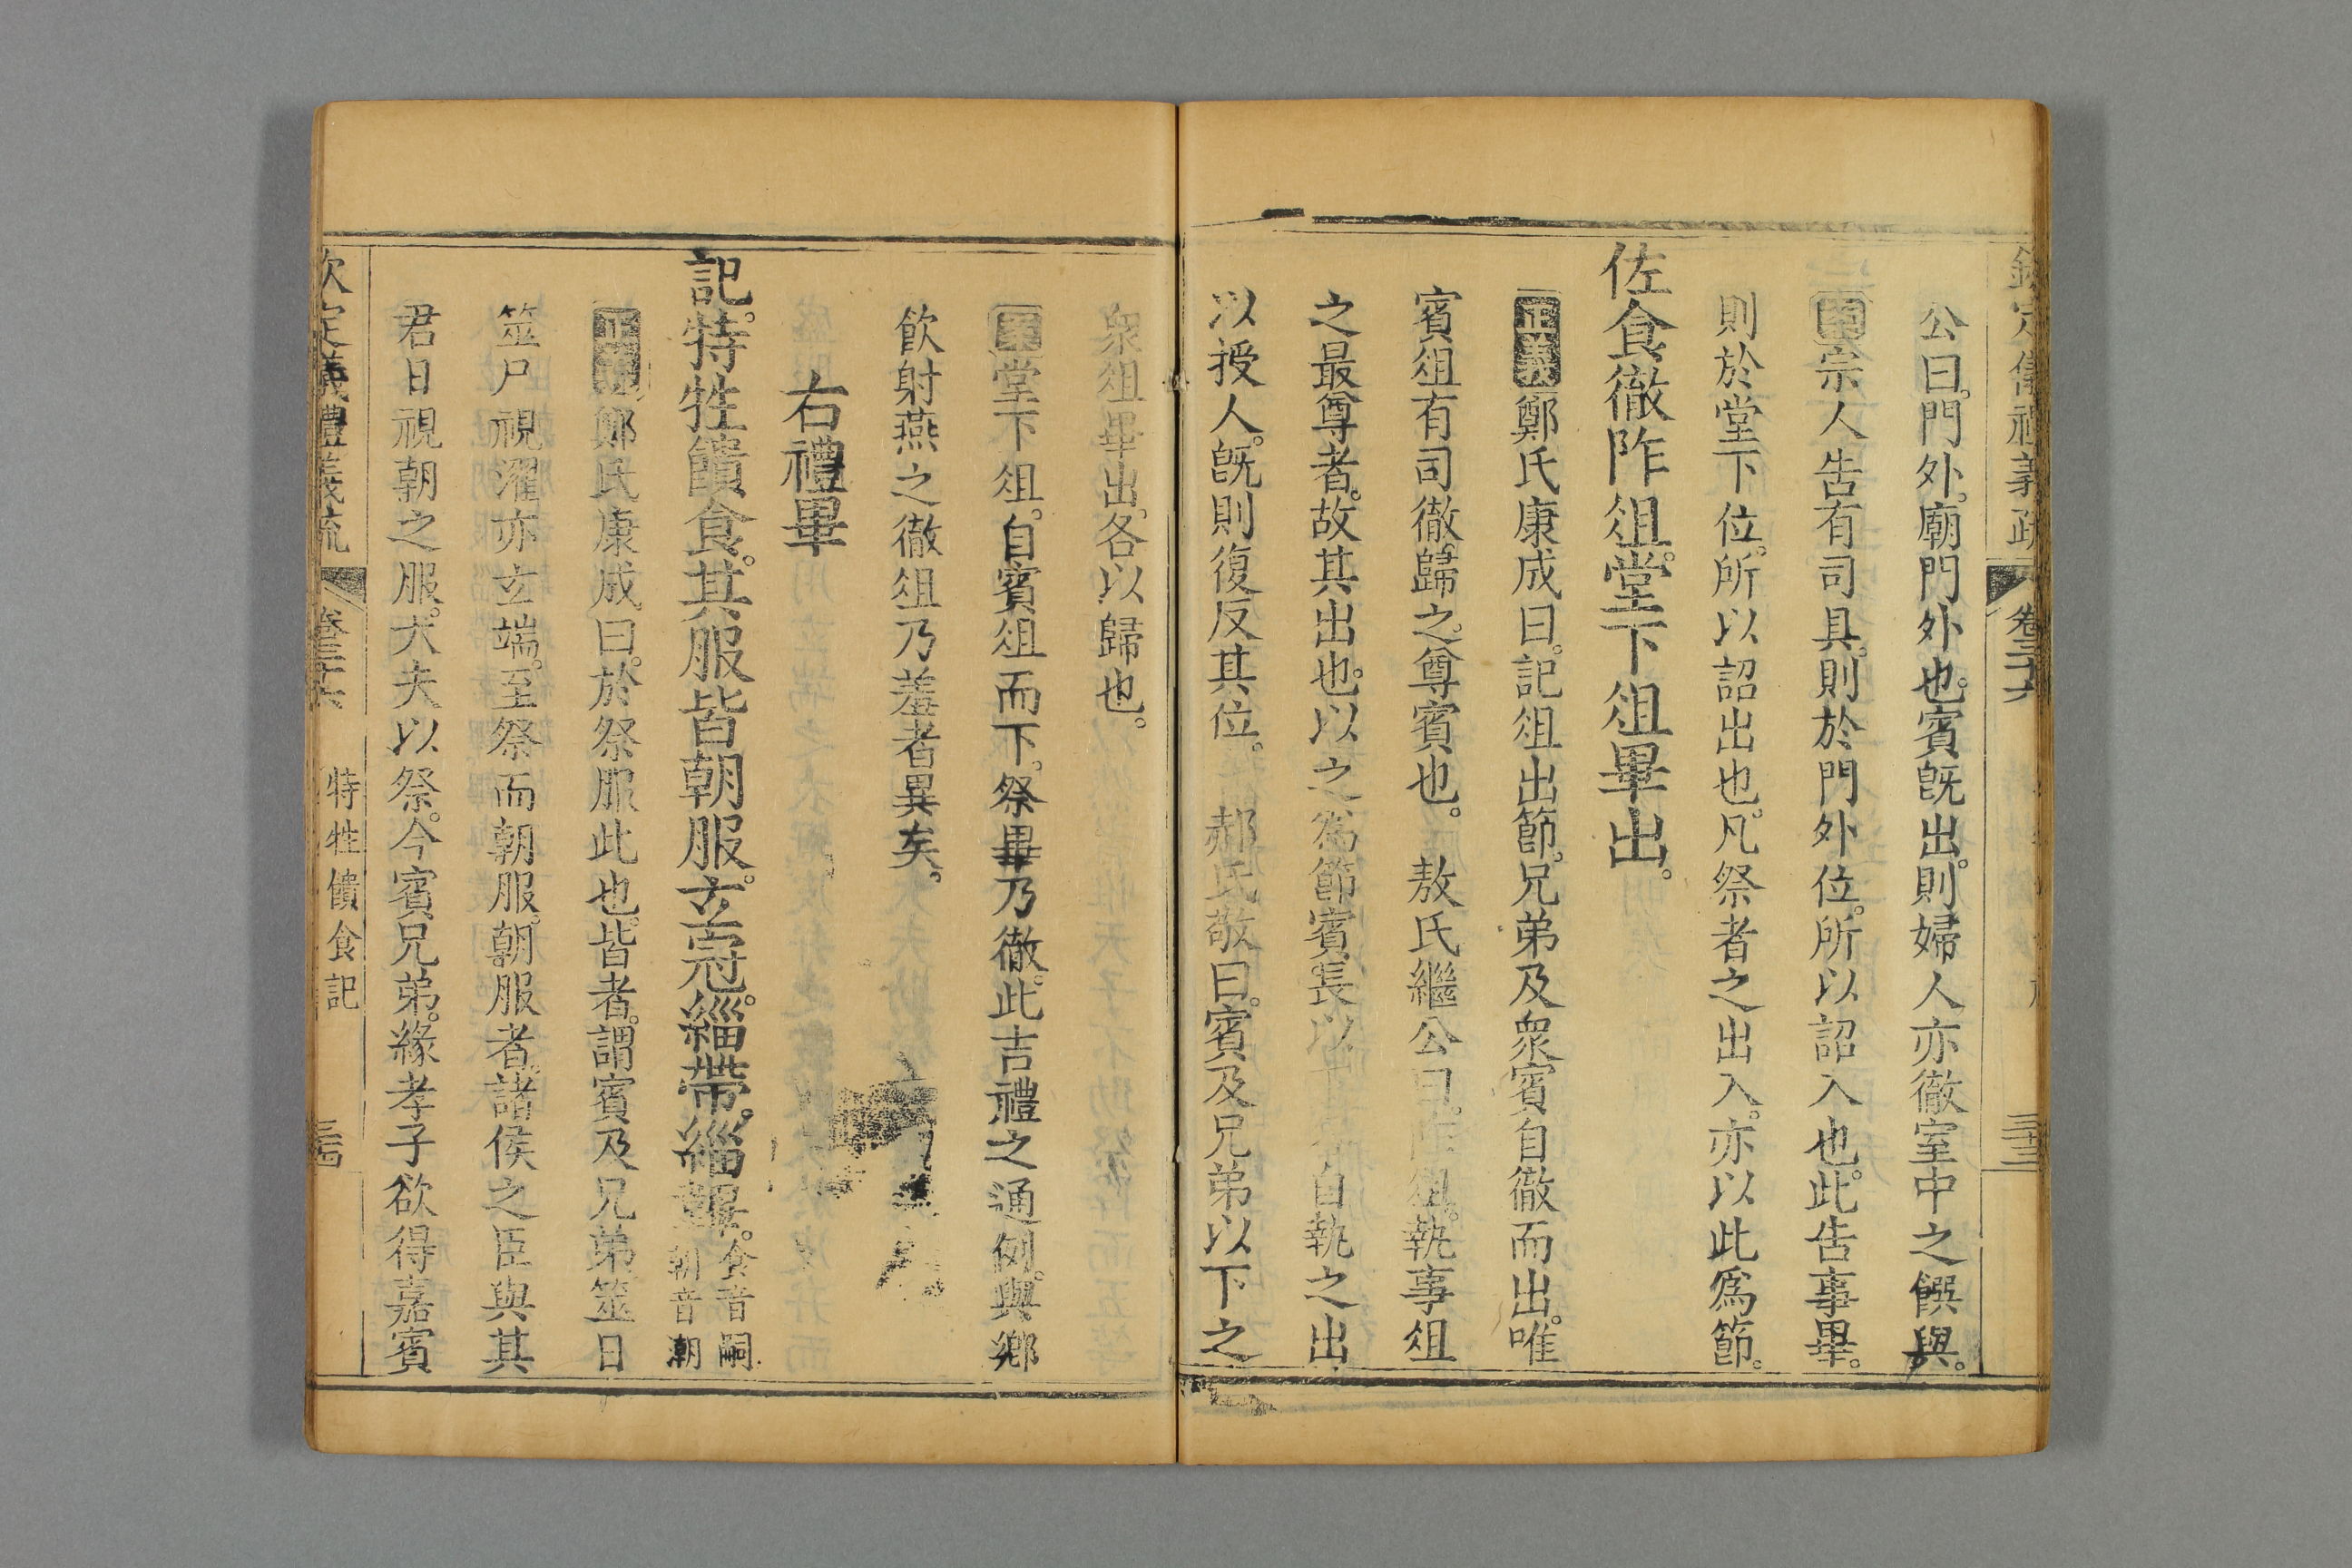 欽定儀禮義疏 卷三十六 三十三
公曰。門外。廟門外也。賓旣出。則婦人亦徹室中之饌與。
案宗人告有司具。則於門外位。所以詔入也。此告事畢。
則於堂下位。所以詔出也。凡祭者之出入。亦以此爲節。
佐食徹阼俎。堂下俎畢出。
正義鄭氏康成曰。記俎出節。兄弟及衆賓自徹而出。唯
賓俎有司徹歸之。尊賓也。 敖氏繼公曰。俎。執事俎
之最尊者。故其出也。以之爲節。賓長以自執之出。
以授人。旣則復反其位。 郝氏敬曰。賓及兄弟以下之
衆俎畢出。各以歸也。
案堂下俎。自賓俎而下。祭畢乃徹。此吉禮之通例。與鄉
飲射燕之徹俎乃羞者異矣。
右禮畢
記。特牲饋食。其服皆朝服。玄冠。緇帶。緇韠。食音嗣 朝音潮
正義鄭氏康成曰。於祭服此也。皆者。謂賓及兄弟。筮日
筮尸視濯亦玄端。至祭而朝服。朝服者。諸侯之臣與其
君日視朝之服。大夫以祭。今賓兄弟。緣孝子欲得嘉賓
欽定儀禮義疏 卷三十六 特牲饋食記 三十四